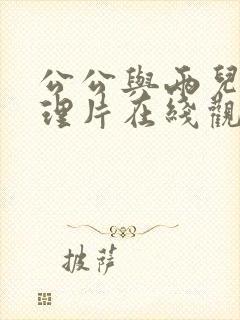 公公與兩兒
理片在綫觀
披薩